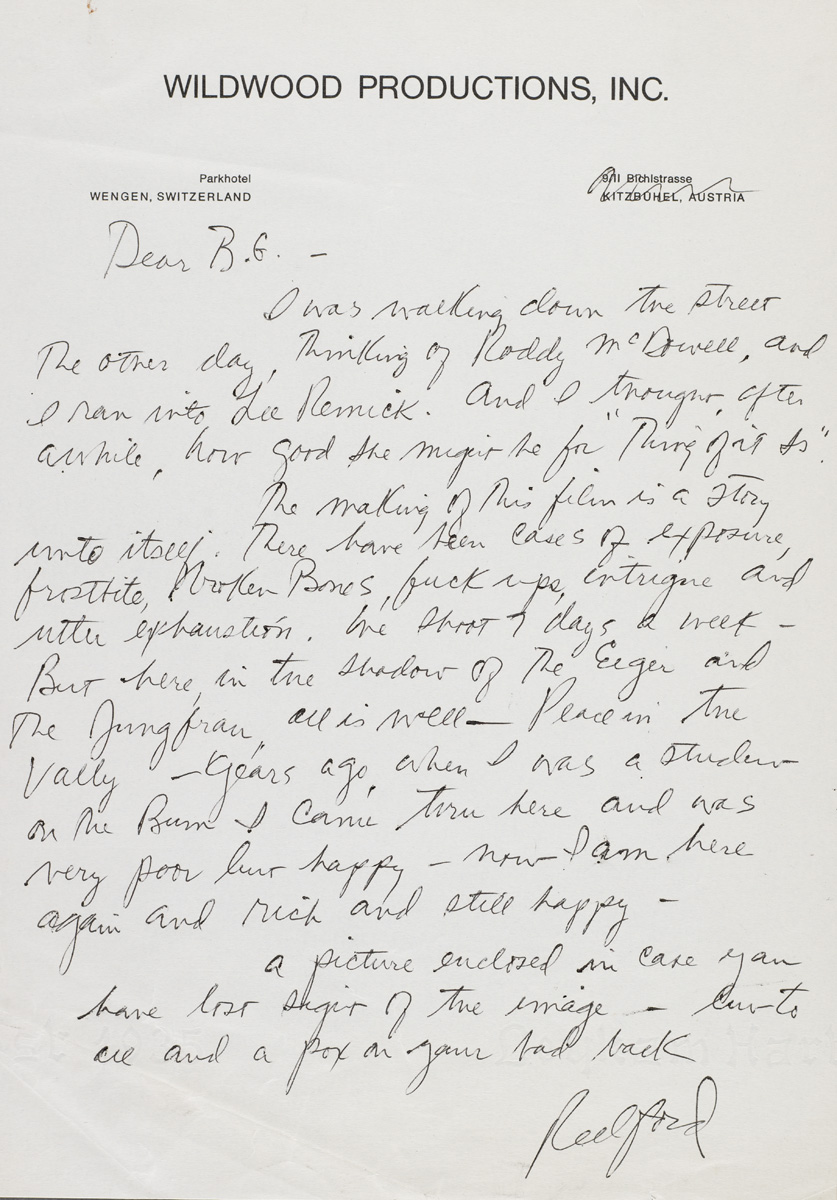 WILDWOOD PRODUCTIONS, INC.
Parkhotel
WENGEN, SWITZERLAND
9/11 Bichlstrasse
KITZBUHEL, AUSTRIA
Dear B.G. –
I was walking down the street
the other day, thinking of Roddy McDowell, and
I ran into Lee Remick. And I thought, after
awhile, how good she might be for "Thing of it Is".
The making of this film is a story
unto itself. There have been cases of exposure,
frostbite, Broken Bones, fuck ups, intrigue and
utter exhaustion. We shoot 7 days a week –
But here, in the shadow of The Eiger and
The Jungfrau, all is well — Peace in the
Vally – years ago, when I was a student
on the Bum I came thru here and was
very poor but happy – now I am here
again and rich and still happy –
a picture enclosed in case you
have lost sight of the image – luv to
all and a pox on your bad back
Redford